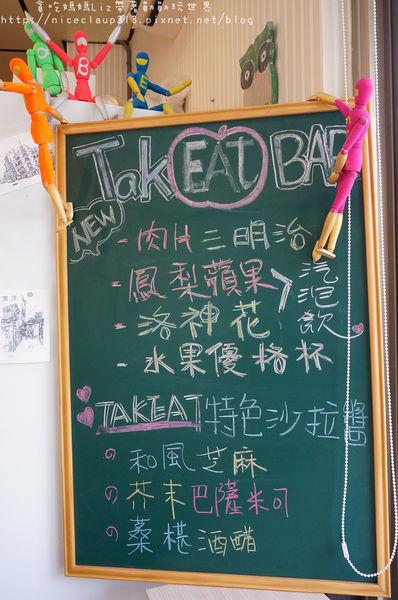 貪吃媽媽Liz帶著勛勛玩世界
http://niceclaup313.pixnet.net/blog
TakEAT BAR
NEW
- 肉片三明治
- 鳳梨蘋果 > 汽泡飲
- 洛神花
- 水果優格杯
TAKEAT 特色沙拉醬
の 和風芝麻
の 芥末巴薩米可
の 桑椹酒醋